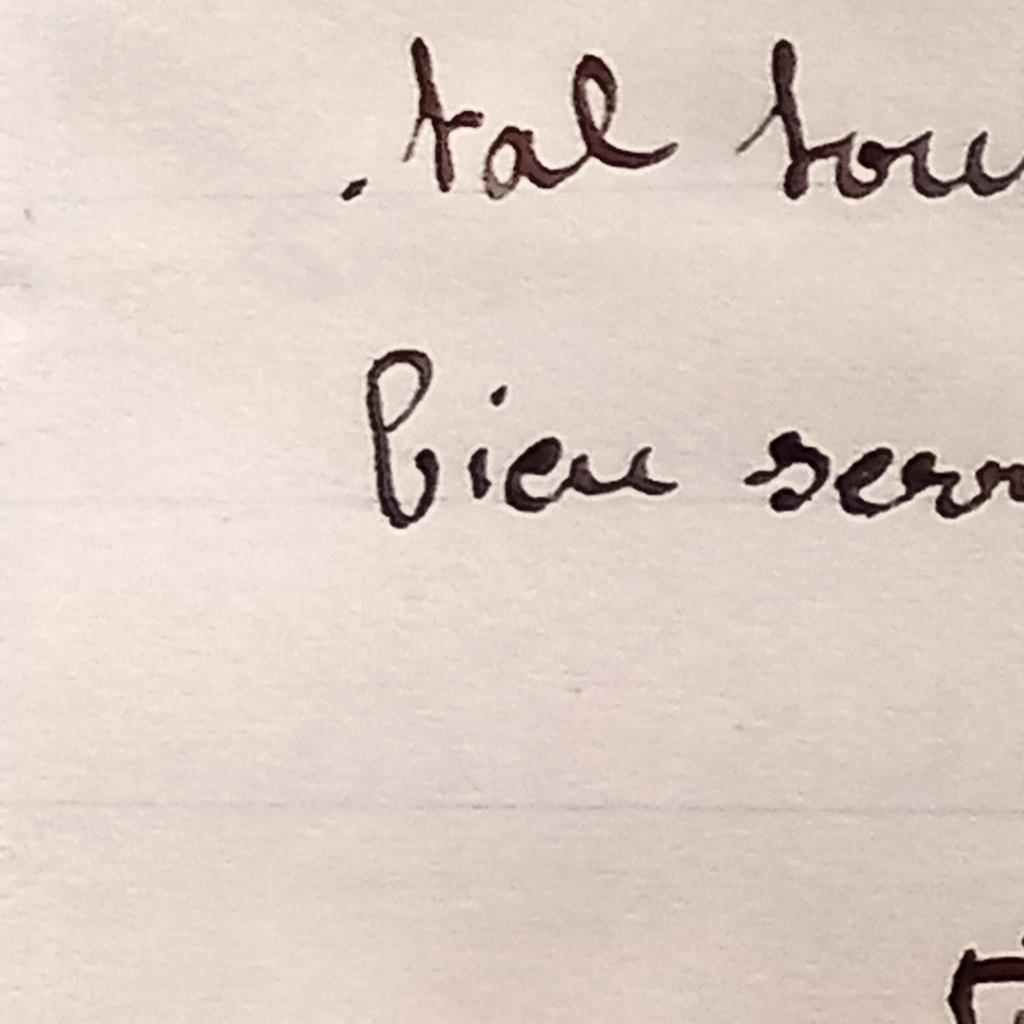 .tal sou
bien serv